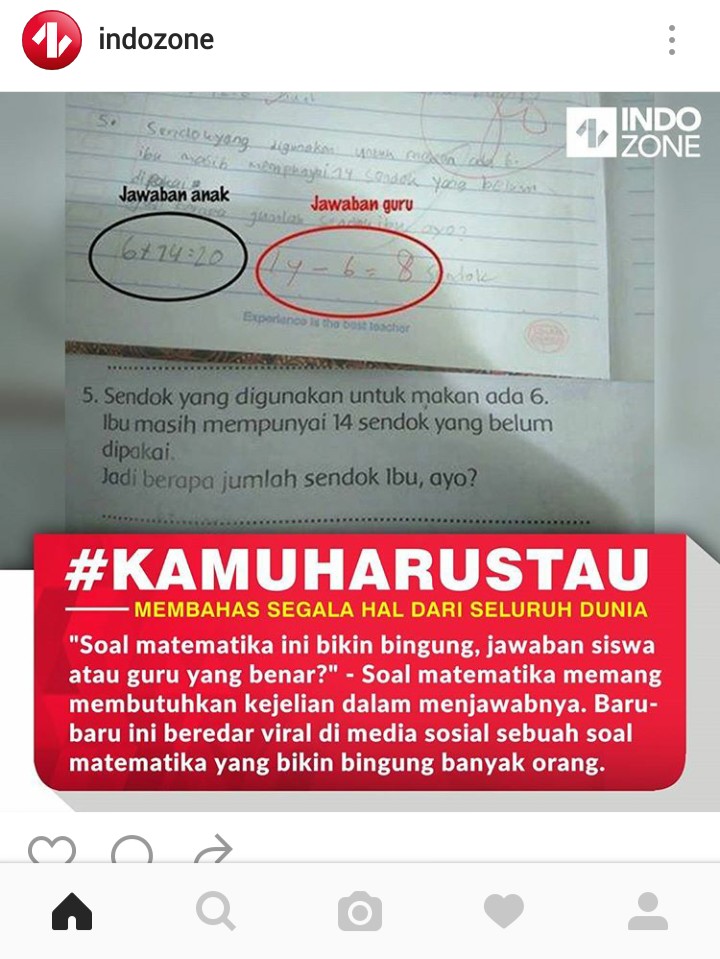 indozone
INDO
ZONE
5. Sendok yang digunakan untuk makan ada 6.
ibu masih mempunyai 14 sendok yang belum
dipakai
Jawaban anak
Jawaban guru
jumlah sendok ibu ayo?
6+14=20
14-6=8 Sendok
Experience is the best teacher
5. Sendok yang digunakan untuk makan ada 6.
Ibu masih mempunyai 14 sendok yang belum
dipakai.
Jadi berapa jumlah sendok Ibu, ayo?
#KAMUHARUSTAU
MEMBAHAS SEGALA HAL DARI SELURUH DUNIA
"Soal matematika ini bikin bingung, jawaban siswa
atau guru yang benar?" - Soal matematika memang
membutuhkan kejelian dalam menjawabnya. Baru-
baru ini beredar viral di media sosial sebuah soal
matematika yang bikin bingung banyak orang.